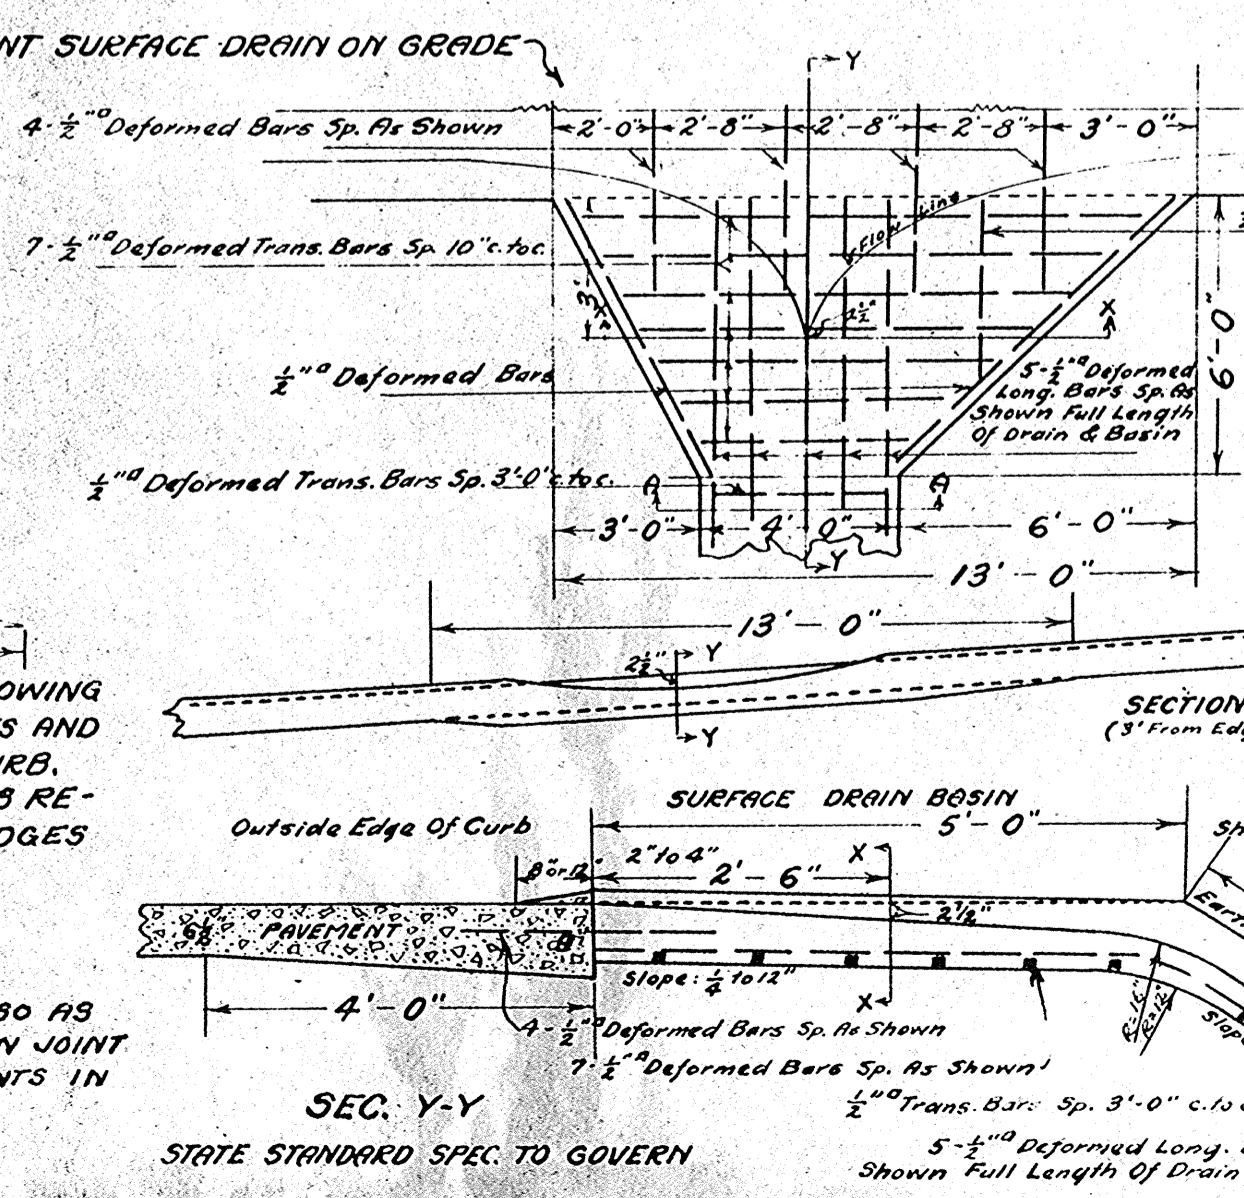 NT SURFACE DRAIN ON GRADE
Y
4-½"□ Deformed Bars Sp. As Shown
2'-0" 2'-8" 2'-8" 2'-8" 3'-0"
Flow Line
7-½"□ Deformed Trans. Bars Sp. 10" c. to c.
3'
2½"
X
X
6'-0"
½"□ Deformed Bars
5-½"□ Deformed
Long. Bars Sp. As
Shown Full Length
Of Drain & Basin
½"□ Deformed Trans. Bars Sp. 3'-0" c. to c.
A A
3'-0" 4'-0" 6'-0"
Y
13'-0"
13'-0"
2½" Y
Y
SECTION
(3' From Edg
OWING
S AND
URB.
S RE-
DGES
SURFACE DRAIN BASIN
Outside Edge Of Curb
5'-0"
8" or 12" 2" to 4" X
2'-6"
2½"
Sh
Earth
6½ PAVEMENT 8
Slope: ¼ to 12"
4'-0" X
R=16"
R=12"
Slope
4-½"□ Deformed Bars Sp. As Shown
7-½"□ Deformed Bars Sp. As Shown
½"□ Trans. Bars Sp. 3'-0" c. to c
5-½"□ Deformed Long.
Shown Full Length Of Drain
SO AS
N JOINT
NTS IN
SEC. Y-Y
STATE STANDARD SPEC. TO GOVERN